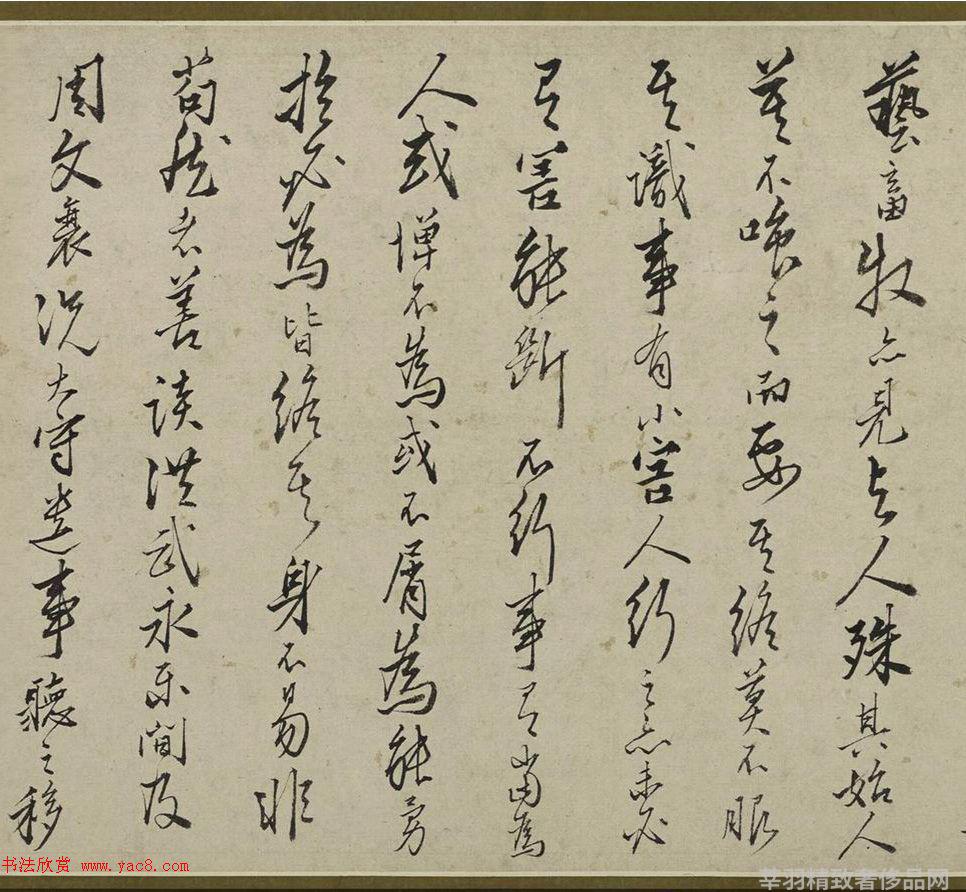 藝畜牧亦見与人殊其始人
莫不嗤之而要其終莫不服
其識事有小害人行之亦未必
有害能斷不行事有當為
人或憚不為或不屑為能勇
於必為皆終其身不易非
苟然者善談洪武永樂間及
周文襄況太守遺事聽之移
书法欣赏 www.yac8.com
莘羽精致奢侈品网